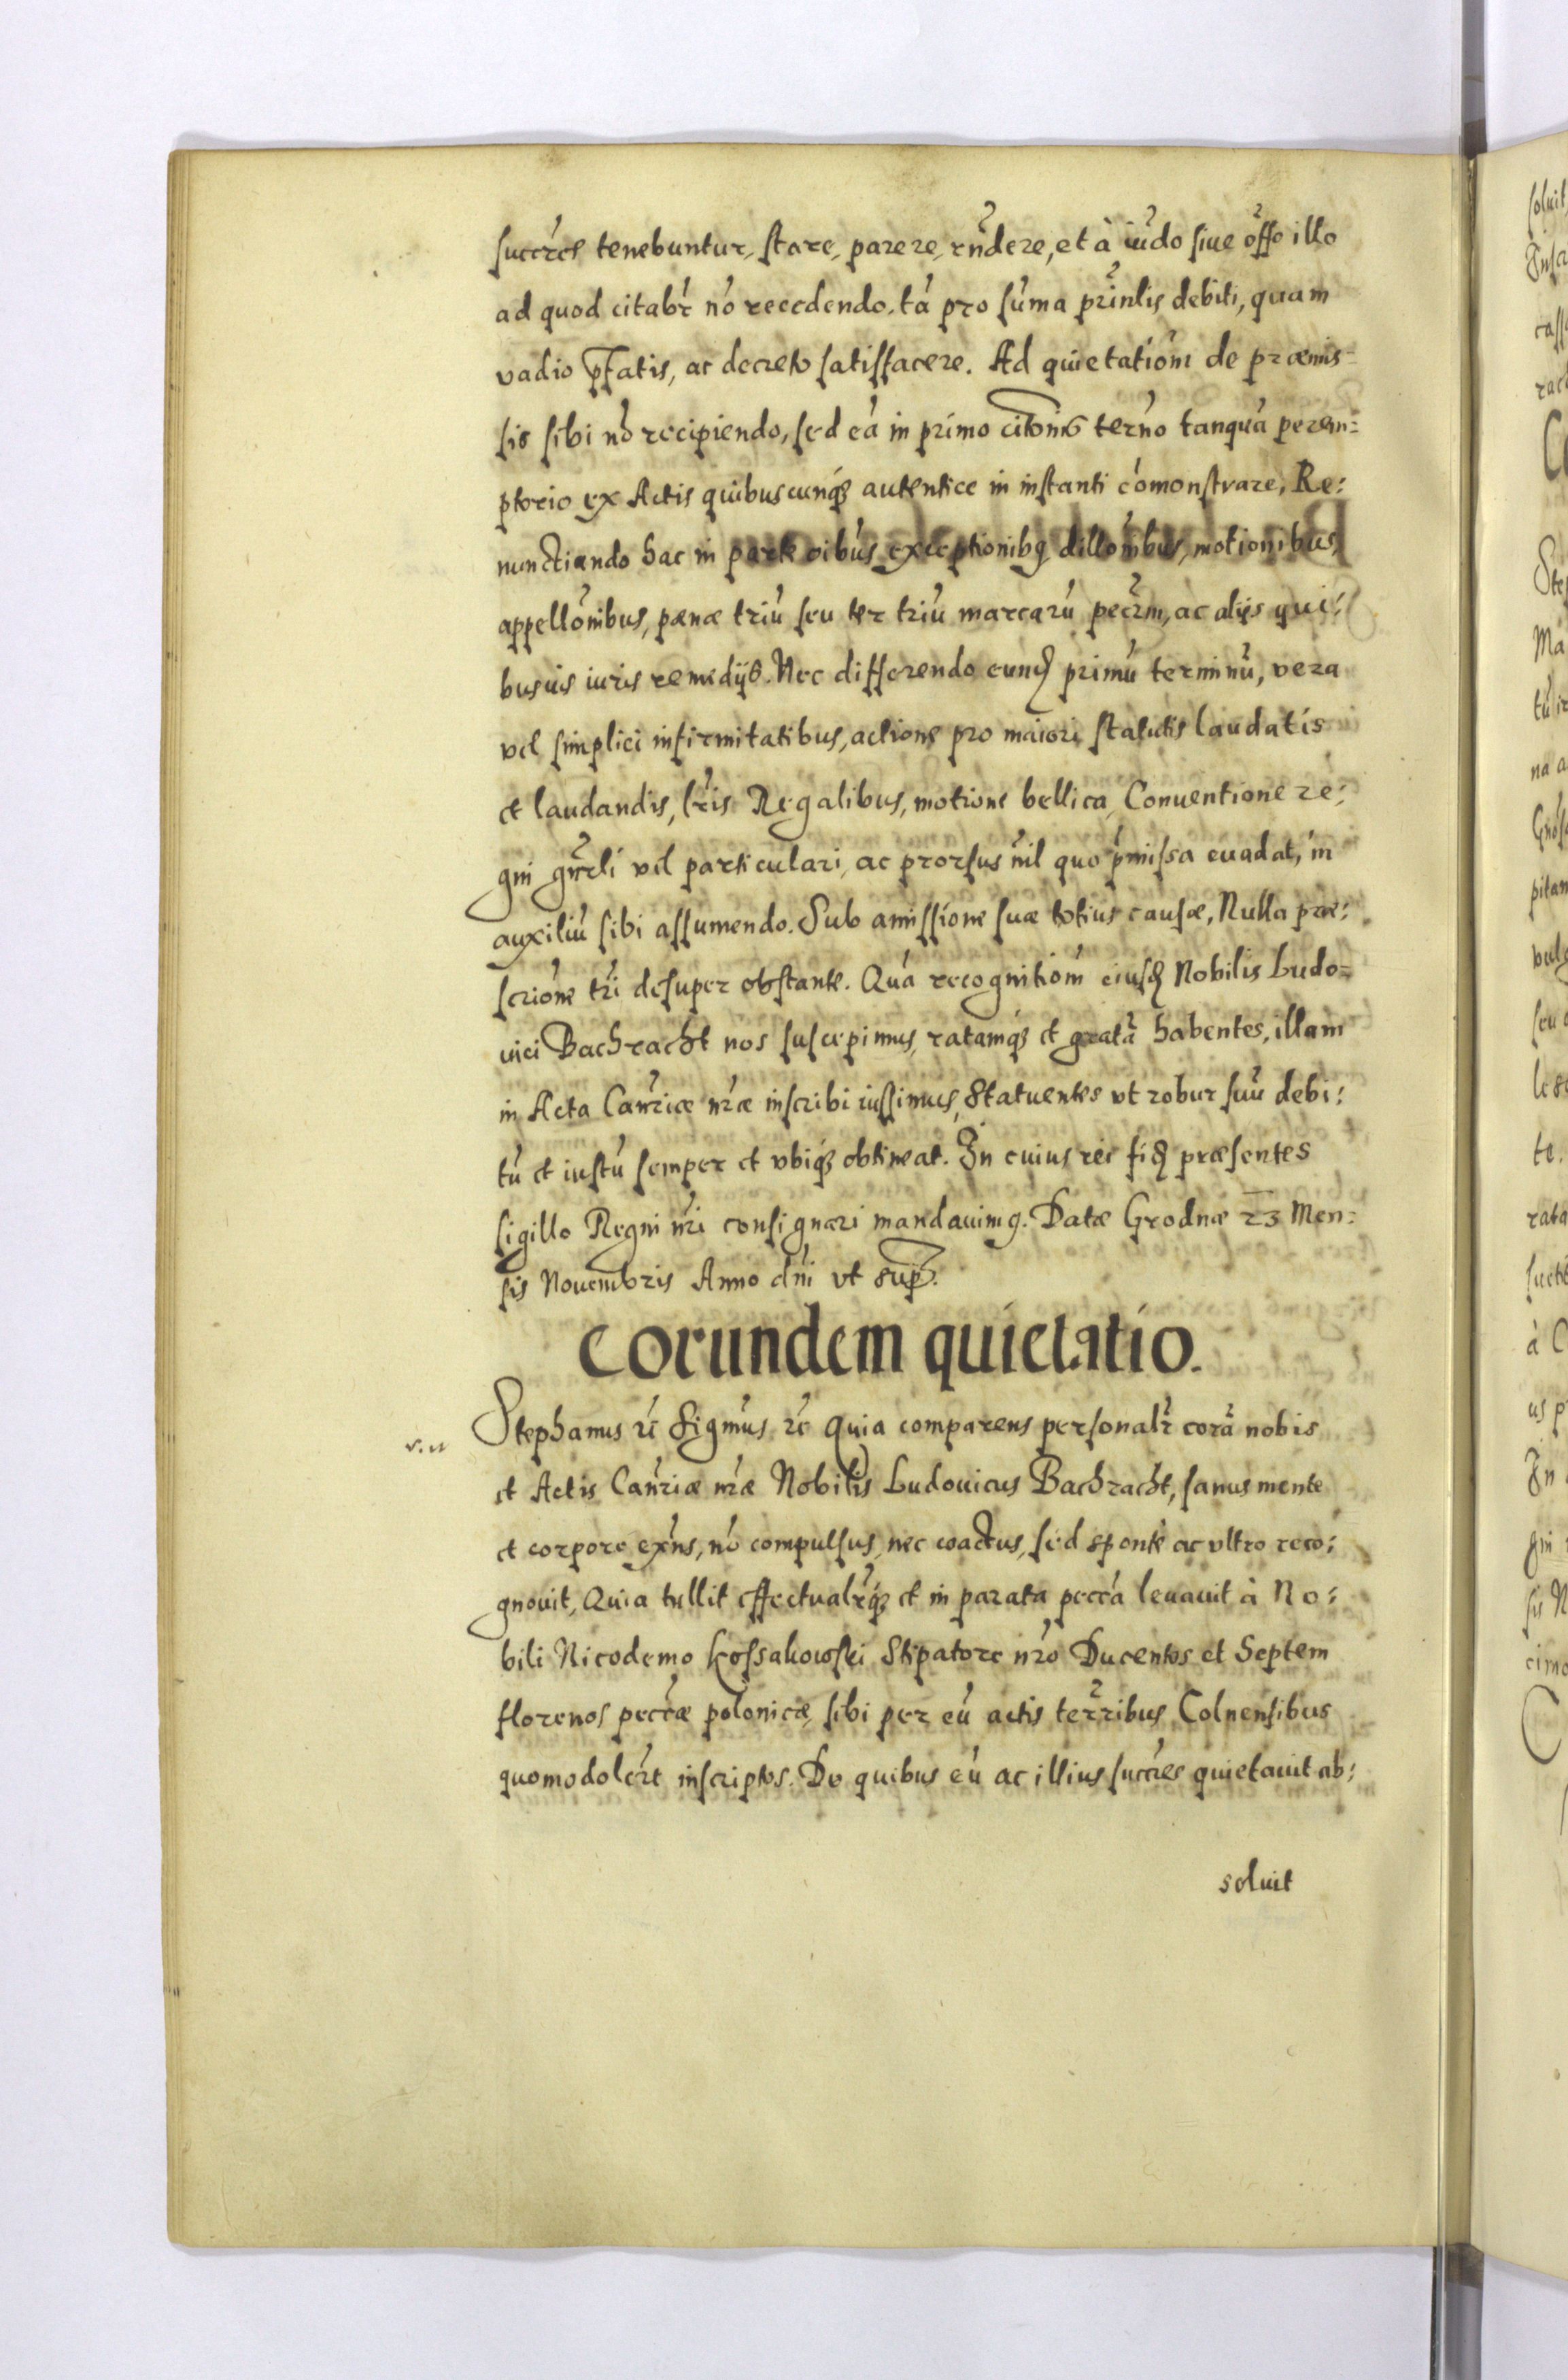 succrēs tenebuntur, stare, parere, rn̄dere, et à iūdo siue offo illo
ad quod citabr̄ nō recedendo, tā pro sūma prīnlis debiti, quam
vadio p̄fatis, ac decreto satisfacere. Ad quietatiōm de præmis-
sis sibi nō recipiendo, sed eā in primo citōnis terno tanquā perem=
ptorio ex Actis quibuscunq; autentice in instanti cōmonstrare, Re:
nunctiando hac in parte oībus exceptionibq dillōnibus, motionibus,
appellōnibus, pænæ triū seu ter triū marcarū pecrm, ac alijs qui:
busuis iuris remedijs. Nec differendo eund primū terminū, vera
vel simplici infirmitatibus, actione pro maiori statutis laudatis
et laudandis, lr̄is Regalibus, motione bellica, Conuentione re:
gni gn̄rli vel particulari, ac prorsus nīl quo p̄missa euadat, in
auxiliū sibi assumendo. Sub amissione suæ totius causæ, Nulla præ:
scriōne tr̄i desuper obstante. Quā recognitiōm eiusd Nobilis Ludo=
uici Bachracht nos suscepimus, ratamq; et gratā habentes, illam
in Acta Canr̄iæ nr̄æ inscribi iussimus, Statuentes vt robur suū debi:
tū et iustū semper et vbiq; obtineat. In cuius rei fid præsentes
sigillo Regni nr̄i consignari mandauimq. Datæ Grodnæ 23 Men:
sis Nouembris Anno dn̄i vt sup.
Eorundem quietatio.
Stephanus rc̄ Sigmūs rc̄ Quia comparens personalr̄ corā nobis
et Actis Canr̄iæ nr̄æ Nobilis Ludouicus Bachracht, sanus mente
et corpore exn̄s, nō compulsus, nec coactus, sed sponte ac vltro reco:
gnouit, Quia tullit effectualr̄q; et in parata peccā leuauit à No:
bili Nicodemo Kossakowski Stipatore nr̄o Ducentos et Septem
florenos peccæ polonicæ, sibi per eū actis terr̄ibus Colnensibus
quomodolcr̄t inscriptos. De quibus eū ac illius succr̄es quietauit ab:
soluit